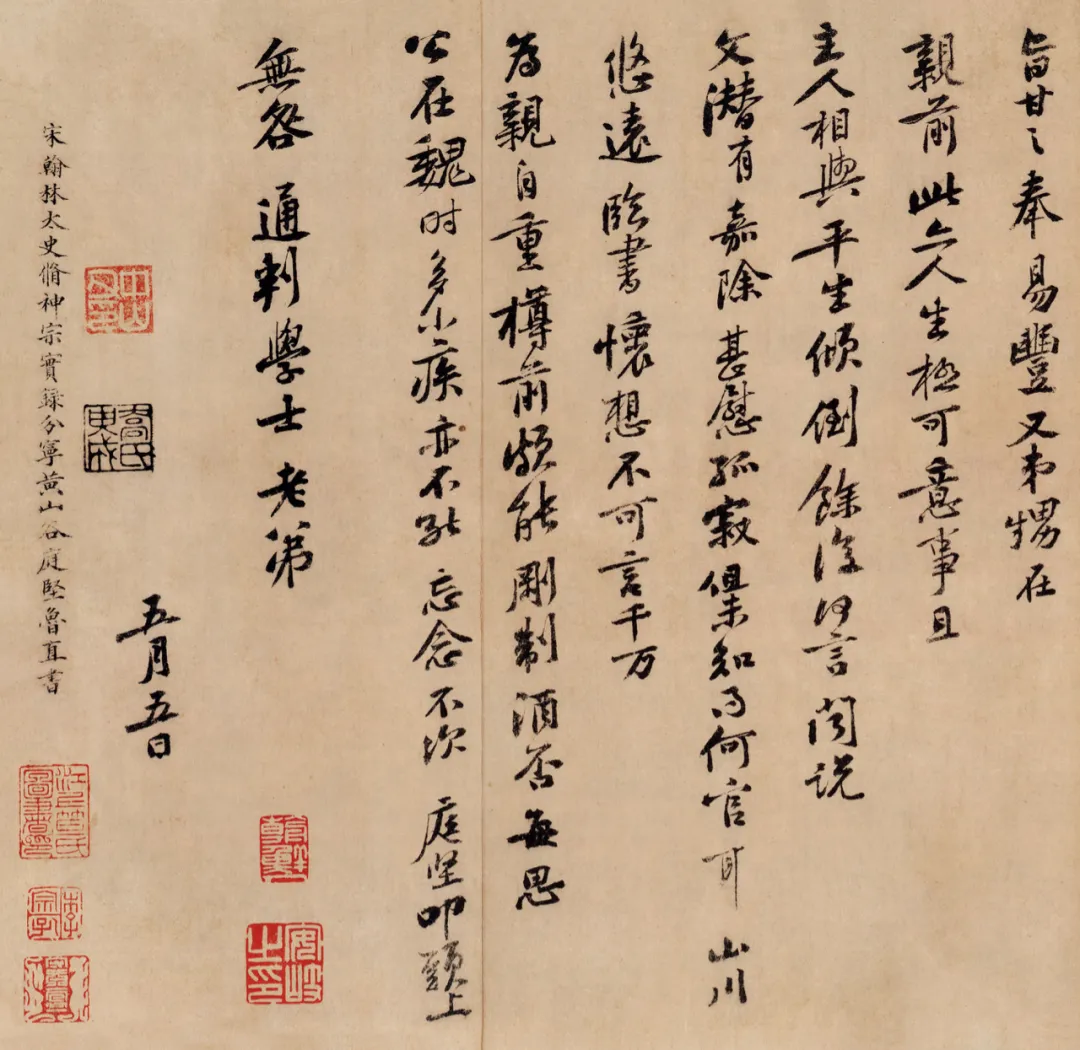 旨甘之奉易豐又弟甥在
親前此亦人生極可意事且
主人相與平生傾倒餘復何言聞說
文潛有嘉除甚慰孤寂但未知得何官耳山川
悠遠臨書懷想不可言千万
為親自重樽前頗能剛制酒否每思
公在魏时多小疾亦不能忘念不次庭堅叩頭上
無咎通判學士老弟
五月五日
宋翰林太史脩神宗實錄分寧黃山谷庭堅魯直書